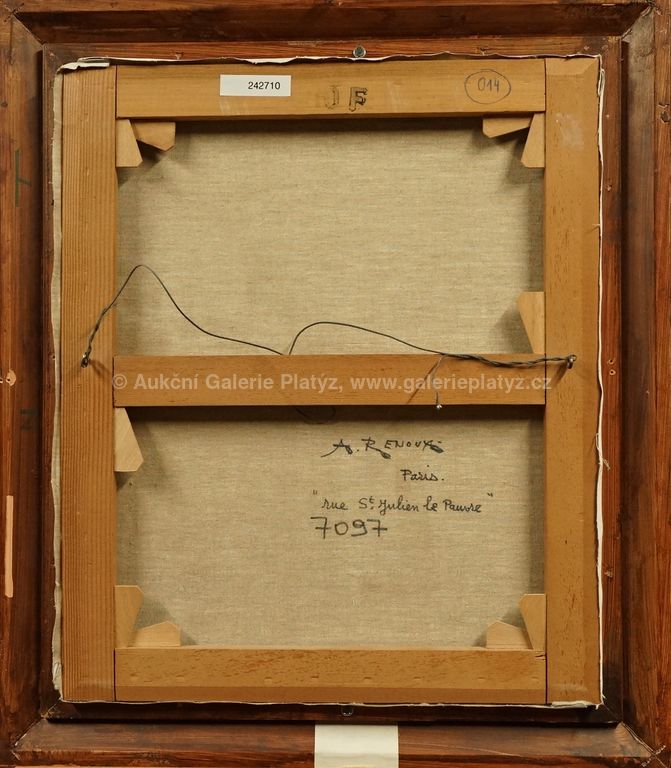 242710
JF
014
© Aukční Galerie Platýz, www.galerieplatyz.cz
A. RENOUX
Paris.
"rue St. Julien le Pauvre"
7097